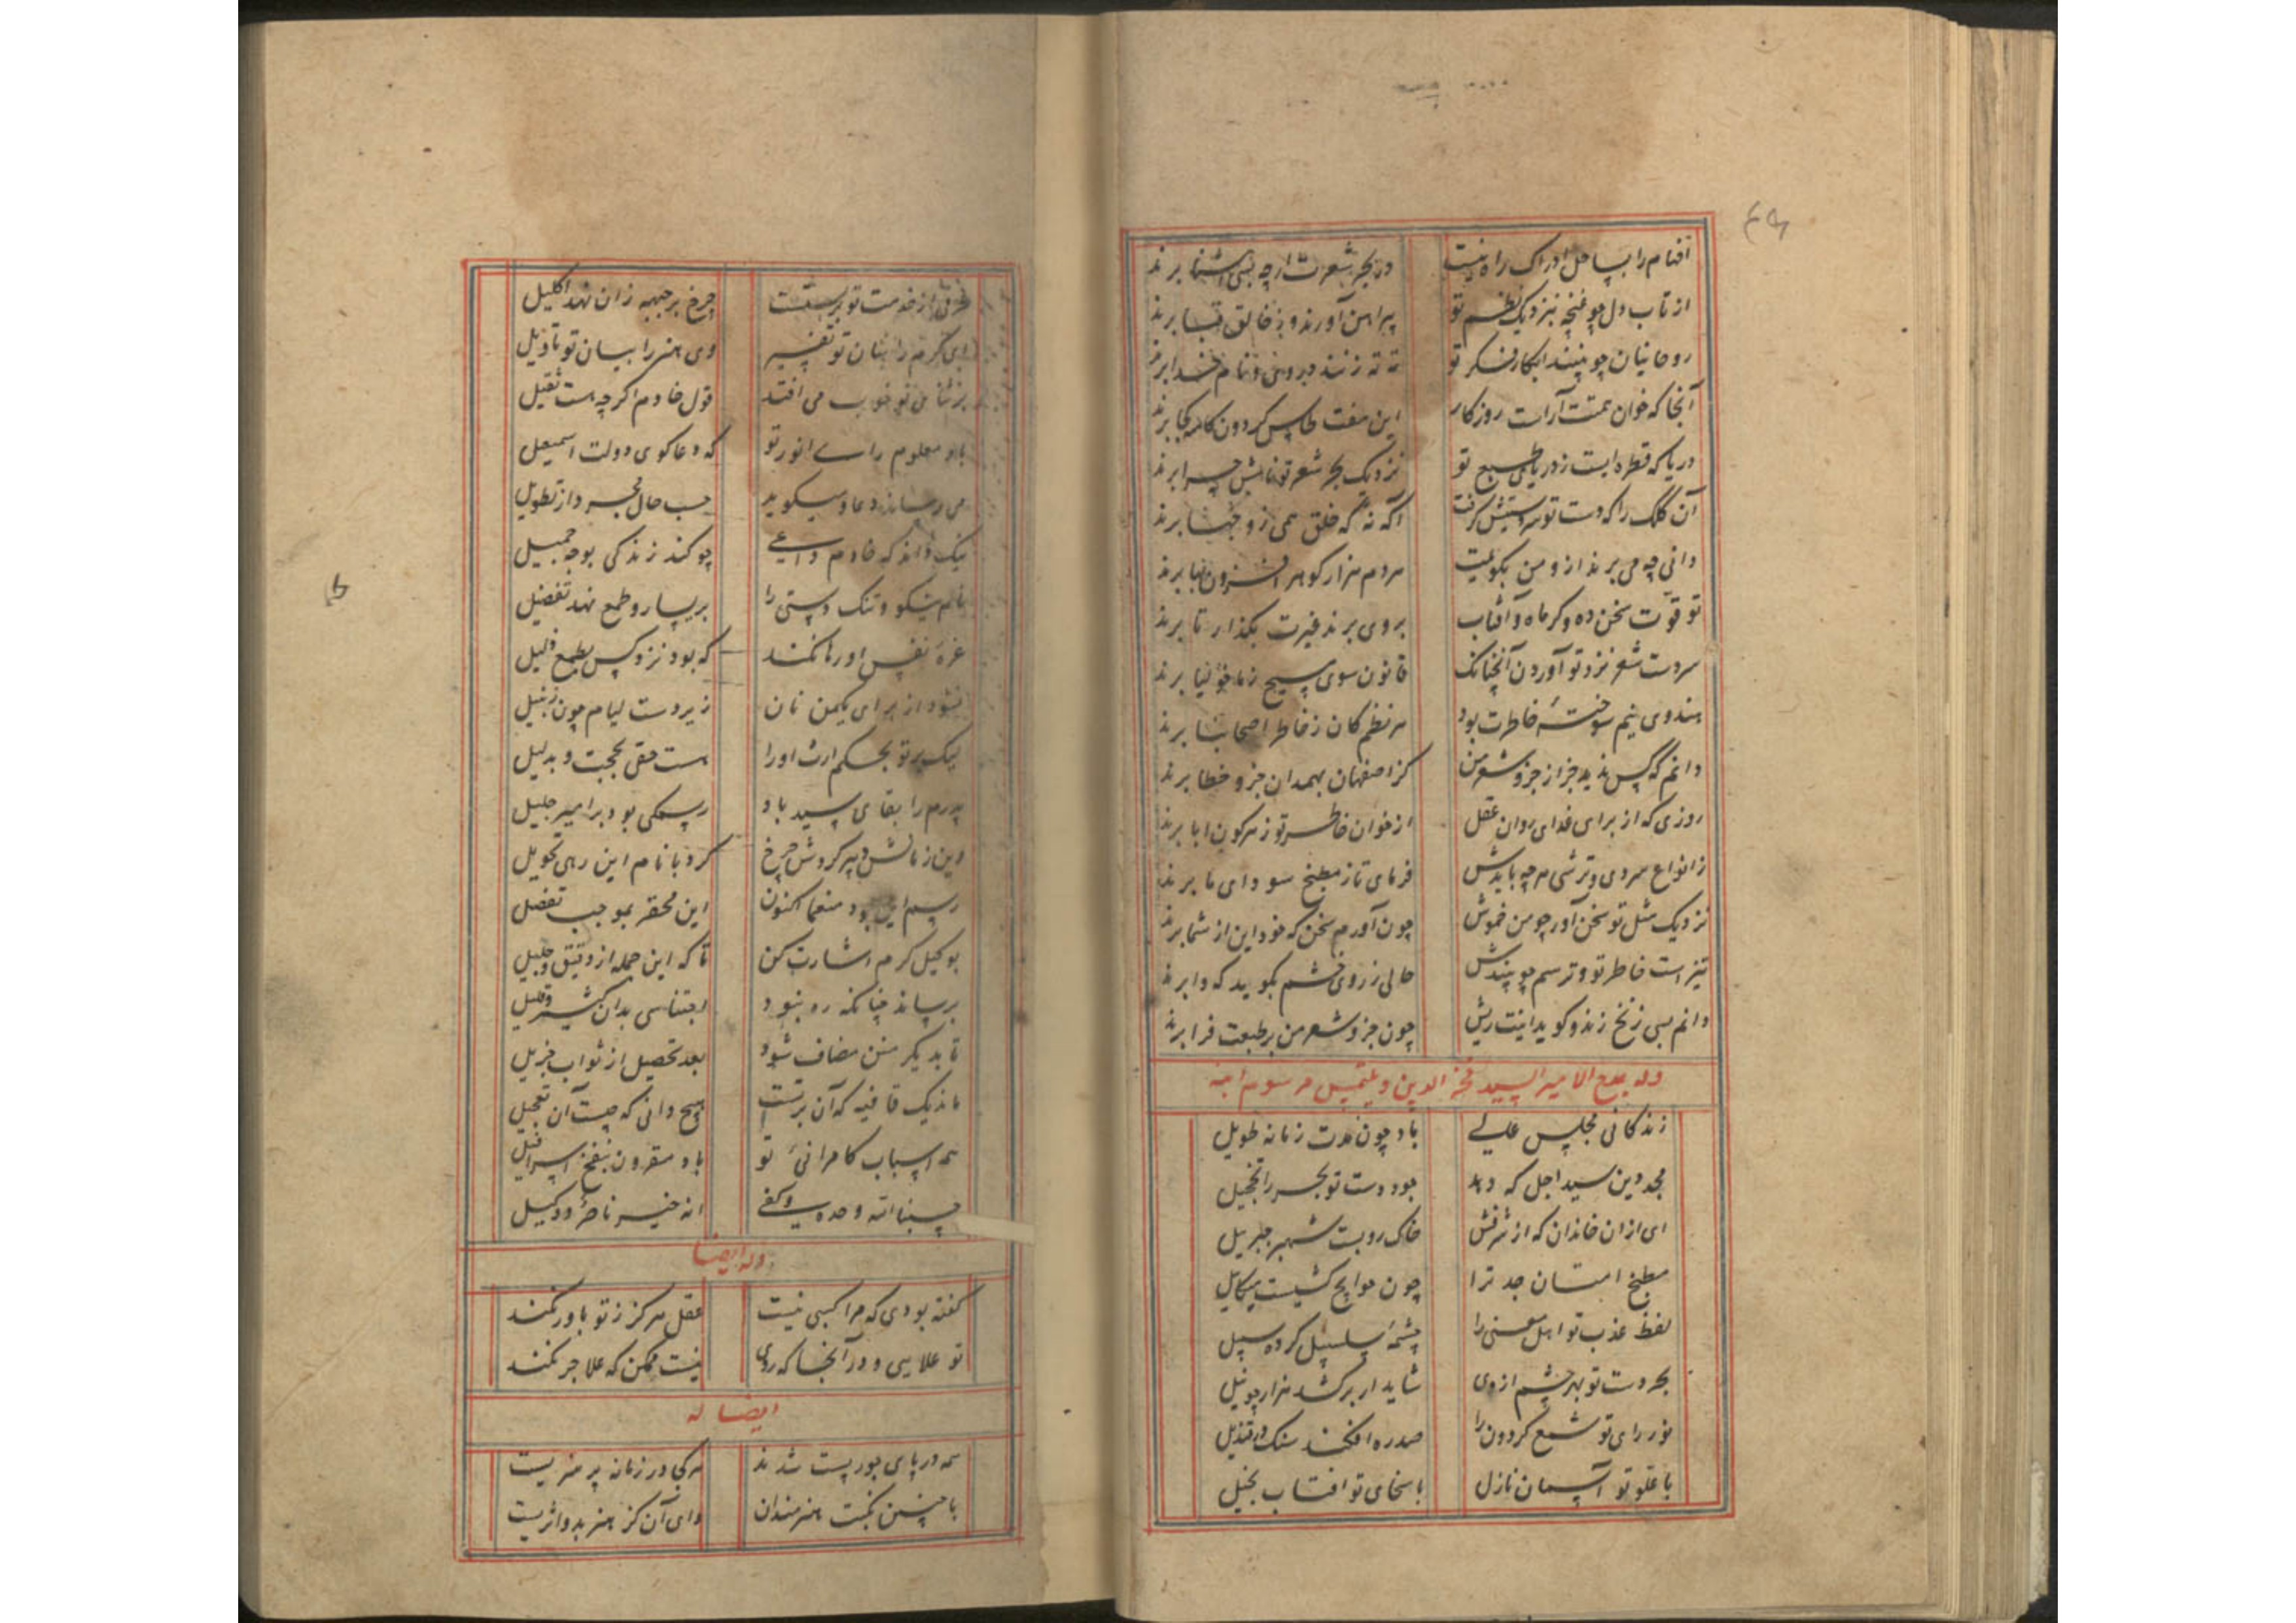 افهام را بساحل ادراک راه نیست در بحر شعرت ارچه بسی آشنا برند
از تاب دل چو غنچه بنزدیک نظم تو پیراهن آورند و ز خالق قبا برند
روحانیان چو بینند ابکار فکر تو زنند و برونی و نام خدا برند
آنجا که خوان همتت آراست روزکار این هفت طاس کردون کاسه کجا برند
دریا که قطره ایست ز دریای طبع تو نزدیک بحر شعر تو نامش چرا برند
آن کلک را که دست تو سر و ستیش کرفت آکه نه که خلق همی زو جهنا برند
دانی چه می برند ازو من بکویمت هر دم هزار کوهر افزون بها برند
تو قوت سخن ده و کر ماه و آفتاب بروی برند غیرت بکذار تا برند
سردست شعر نزد تو آوردن آنچنانک قانون سوی مسیح ز ماخولیا برند
هندوی نیم سوخته خاطرت بود هر نظم کان ز خاطر اصحابنا برند
دانم که کس ندید جز از جزو شعر من کز اصفهان بهمدان جزو خطا برند
روزی که از برای غدای روان عقل از خوان خاطر تو ز هرکون ابا برند
ز انواع سردی و ترشی هرچه بایدش فرمای تا ز مطبخ سودای ما برند
نزدیک مثل تو سخن آور چو من خموش چون آورم سخن که خود این از شما برند
تیز است خاطر تو و ترسم چو بیندش حالی ز روی خشم بکوید که وا برند
دانم بسی زنخ زند و کوید اینت ریش چون جزو شعر من بر طبعت فرا برند
وله یمدح الامیر السید فخر الدین و یلتمس مرسومه منه
زندکانی مجلس عالی باد چون مدت زمانه طویل
مجد دین سید اجل که دهد جود دست تو بحر را تخجیل
ای از ان خاندان که از شرفش خاک روبست شهپر جبریل
مطبخ امتنان جد ترا چون حوایج کشیست میکاییل
لفظ عذب تو اهل معنی را چشمه سلسبیل کرده سبیل
بحر دست تو بهر چشم ازوی شاید ار برکشد هزار چو نیل
نور رای تو شمع کردون را صد ره افکند سنک در قندیل
با علو تو آسمان نازل با سخای تو افتاب بخیل
فرقی از خدمت تو بربستست چرخ بر جبهه زان نهد اکلیل
ای کرم را بنان تو تفسیر وی هنر را بیان تو تاویل
می افتد قول خادم اکرچه هست ثقیل
باد معلوم رای انور تو که دعاکوی دولت اسمعیل
می رساند دعا و میکوید حسب حال مجرد از تطویل
نیک داند که خادم داعی چو کند زندکی بوجه جمیل
تنک دستی را بر یسار و طمع نهد تفضیل
عزه نفس او رها نکند که بود نزد کس بطمع ذلیل
نشود از برای یکمن نان زیر دست لیام چون زنبیل
لیک بر تو بحکم ارث او را هست حقی بحجت و بدلیل
پدرم را بقای سید باد رسمکی بود بر امیر جلیل
وین زمانش دبیر کردش چرخ کرد با نام این رهی تحویل
رسم این بود منعما اکنون این محقر بموجب تفضل
بوکیل کرم اشارت کن تا که این جمله از دقیق و جلیل
برساند چنانکه ره نبود احتباسی بدان کثیر و قلیل
تا بدیکر منن مضاف شود بعد تحصیل از ثواب جزیل
ماند یک قافیه که آن بر تست هیچ دانی که چیست آن تعجیل
همه اسباب کامرانی تو باد مقرون بنفخ اسرافیل
حسبنا الله وحده و کفی انه خیر ناصر و وکیل
وله ایضا
کفته بودی که مرا کسبی نیست عقل هرکز ز تو باور نکند
تو علایی و در آنجا که روی نیست ممکن که علا جر نکند
ایضا له
همه در پای جور پست شدند هر کجا در زمانه پر هنریست
با چنین نکبت هنرمندان وای آن کز هنر بدو اثریست